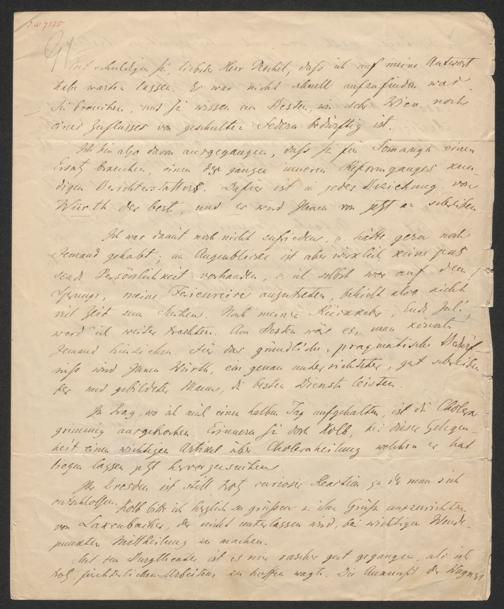 Entschuldigen Sie, liebster Herr Kolb, daß ich auf meine Antwort
habe warten lassen. Es war nicht schnell aufzufinden was
Sie brauchen, und Sie wissen am Besten, wie sehr Wien noch
eines Zuflusses von geschulten Federn bedürftig ist.
Ich bin also davon ausgegangen, daß Sie für einen
Ersatz brauchen, einen des ganzen inneren Reformganges kun-
digen Berichterstatters. Dafür ist in jeder Beziehung von
Würth der beste, und er wird Ihnen von jetzt an schreiben.
Ich war damit noch nicht zufrieden, u. hätte gern noch
Jemand gehabt; im Augenblicke ist aber wirklich keine pas-
sende Persönlichkeit vorhanden, u. ich selbst war auf dem
Sprunge, meine Ferienreise anzutreten, behielt also nicht
viel Zeit zum Suchen. Nach meiner Rückkehr, Ende Juli,
werd ich weiter trachten. Am Besten wäre es, man
Jemand hinzichen. Für das gründliche, pragmatische
wird Ihnen Würth, ein genau unterrichteter, gut schreiben-
der und gebildeter Mann, die besten Dienste leisten.
In Prag, wo ich mich einen halben Tag aufgehalten, ist die Cholera
grimmig ausgebrochen. Erinnern Sie doch Kolb, bei dieser Gelegen-
heit einen wichtigen Artikel über Cholerаheilung welchen er hat
liegen lassen jetzt hervorzusuchen.
In Dresden ist still trotz Reaction zu der man sich
entschlossen. Kolb bitt ich herzlich zu grüßen u. ihm Grüße auszurichten
von Laxenbacher, der nicht unterlassen wird, bei wichtigen Wende-
punkten Mittheilung zu machen.
Mit dem Burgtheater ist es mir rascher gut gegangen, als ich
trotz fürchterlichen Arbeitens zu hoffen wagte. Die Ankunft der Wagner